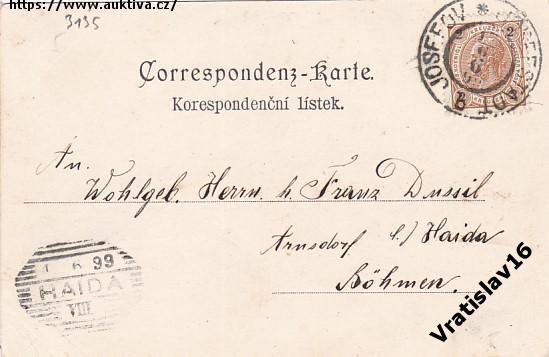 https://www.auktiva.cz/
3135
JOSEFOV * JOSEFSTADT
2
Correspondenz-Karte.
Korespondenční lístek.
An.
Wohlgeb. Herrn h. Franz Dussil
Arnsdorf b/ Haida
Böhmen.
1 6 99
HAIDA
VIII
Vratislav16